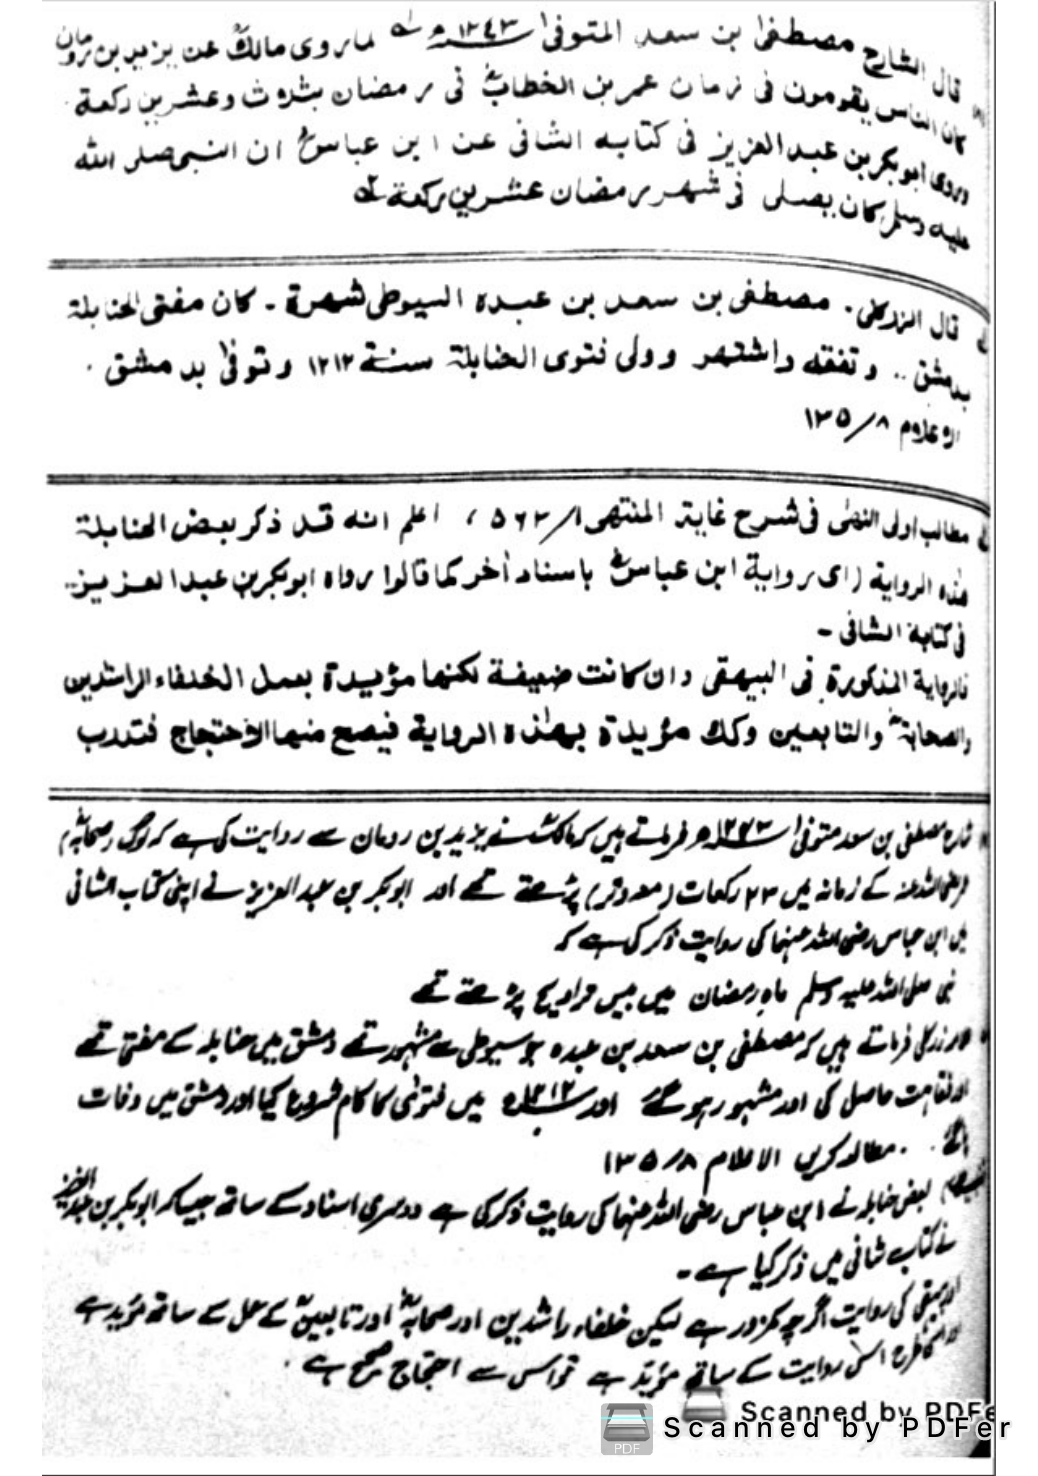 قال الشارح مصطفیٰ بن سعد المتوفیٰ ۱۲۴۳ھ لما روی مالکؒ عن یزید بن رومان
کان الناس یقومون فی زمان عمر بن الخطابؓ فی رمضان بثلاث وعشرین رکعة
وروی ابوبکر بن عبد العزیز فی کتابه الشافی عن ابن عباسؓ ان النبی صلی الله
علیه وسلم کان یصلی فی شهر رمضان عشرین رکعة
قال الزرکلی۔ مصطفیٰ بن سعد بن عبده السیوطی شهرة ۔ کان مفتی الحنابلة
بدمشق .. وتفقه واشتهر وولی فتوی الحنابلة سنة ۱۲۱۲ وتوفیٰ بدمشق .
الاعلام ۸/۱۳۵
مطالب اولی النهیٰ فی شرح غایة المنتهی ۱/۵۶۳، اعلم انه قد ذکر بعض الحنابلة
هذه الروایة (ای روایة ابن عباسؓ باسناد أخر کما قالوا رواه ابوبکر بن عبد العزیز..
فی کتابة الشافی -
فالروایة المذکورة فی البیهقی وان کانت ضعیفة لکنها مؤیدة بعمل الخلفاء الراشدین
والصحابةؓ والتابعین وکک مؤیدة بهٰذه الروایة فیصح منها الاحتجاج فتدرب
شارح مصطفیٰ بن سعد متوفیٰ ۱۲۴۳ھ فرماتے ہیں کہ مالکؒ نے یزید بن رومان سے روایت کی ہے کہ لوگ (صحابہؓ)
رضی اللہ عنہ کے زمانہ میں ۲۳ رکعات (مع وتر) پڑھتے تھے اور ابوبکر بن عبدالعزیز نے اپنی کتاب الشافی
میں ابن عباس رضی اللہ عنہما کی روایت ذکر کی ہے کہ
نبی صلی اللہ علیہ وسلم ماہ رمضان میں بیس تراویح پڑھتے تھے
علامہ زرکلی فرماتے ہیں کہ مصطفیٰ بن سعد بن عبدہ جو سیوطی سے مشہور تھے دمشق میں حنابلہ کے مفتی تھے
اور فقاہت حاصل کی اور مشہور ہو گئے اور ۱۲۱۲ھ میں فتویٰ کا کام شروع کیا اور دمشق میں وفات
پاگئے . . مطالعہ کریں الاعلام ۸/۱۳۵
بعض حنابلہ نے ابن عباس رضی اللہ عنہما کی روایت ذکر کی ہے دوسری اسناد کے ساتھ جیسا کہ ابوبکر بن عبد العزیز
نے کتاب شافی میں ذکر کیا ہے ۔
اور بیہقی کی روایت اگرچہ کمزور ہے لیکن خلفاء راشدین اور صحابہؓ اور تابعینؒ کے عمل سے ساتھ مؤید ہے
اور اسی طرح اس روایت کے ساتھ مؤید ہے تو اس سے احتجاج صحیح ہے .
Scanned by PDFer
Scanned by PDFer
PDF